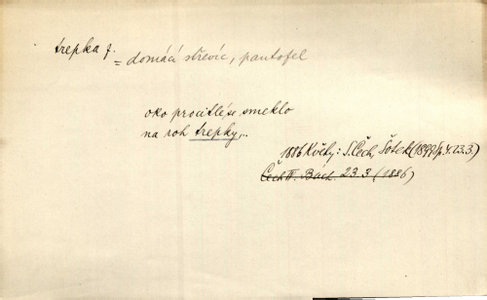 trepka f.
= domácí střevíc, pantofel
oko procitlé se smeklo
na roh trepky,..
1886 Květy: S. Čech, Šotek (1899, 23.3.)
Čech II. Bách. 23.3 (1886)